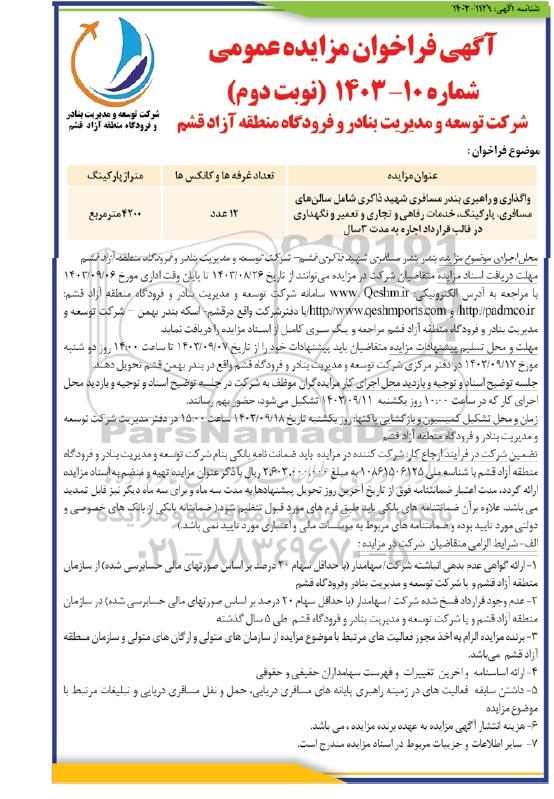 شناسه آگهی: ۱۱۲۹-۱۴۰۳
آگهی فراخوان مزایده عمومی
شماره ۱۰-۱۴۰۳ (نوبت دوم)
شرکت توسعه و مدیریت بنادر و فرودگاه منطقه آزاد قشم
شرکت توسعه و مدیریت بنادر
و فرودگاه منطقه آزاد قشم
موضوع فراخوان :
عنوان مزایده تعداد غرفه ها و کانکس ها متراژ پارکینگ
واگذاری و راهبری بندر مسافری شهید ذاکری شامل سالن‌های
مسافری، پارکینگ، خدمات رفاهی و تجاری و تعمیر و نگهداری
در قالب قرارداد اجاره به مدت ۳سال
۱۲ عدد
۴۲۰۰ مترمربع
محل اجرای موضوع مزایده بندر مسافری شهید ذاکری قشم- شرکت توسعه و مدیریت بنادر و فرودگاه منطقه آزاد قشم
مهلت دریافت اسناد مزایده متقاضیان شرکت در مزایده می‌توانند از تاریخ ۱۴۰۳/۰۸/۲۶ تا پایان وقت اداری مورخ ۱۴۰۳/۰۹/۰۶
با مراجعه به آدرس الکترونیکی: www. Qeshm.ir سامانه شرکت توسعه و مدیریت بنادر و فرودگاه منطقه آزاد قشم:
http://padmco.ir و http://www.qeshmports.com/با دفترشرکت واقع درقشم- اسکه بندر بهمن – شرکت توسعه و
مدیریت بنادر و فرودگاه منطقه آزاد قشم مراجعه و یک سری کامل از اسناد مزایده را دریافت نماید.
مهلت و محل تسلیم پیشنهادات مزایده متقاضیان باید پیشنهادات خود را از تاریخ ۱۴۰۳/۰۹/۰۷ تا ساعت ۱۴:۰۰ روز دو شنبه
مورخ ۱۴۰۳/۰۹/۱۷ در دفتر مرکزی شرکت توسعه و مدیریت بنادر و فرودگاه قشم واقع در بندر بهمن قشم تحویل دهند.
جلسه توضیح اسناد و توجیه و بازدید محل اجرای کار مزایده گران موظف به شرکت در جلسه توضیح اسناد و توجیه و بازدید محل
اجرای کار که در ساعت ۱۰:۰۰ روز یکشنبه ۱۴۰۳/۰۹/۱۱ تشکیل می‌شود، حضور بهم رسانند.
زمان و محل تشکیل کمیسیون و بازگشایی پاکتها: روز یکشنبه تاریخ ۱۴۰۳/۰۹/۱۸ ساعت ۱۵:۰۰ در دفتر مدیریت شرکت توسعه
و مدیریت بنادر و فرودگاه منطقه آزاد قشم
تضمین شرکت در فرایند ارجاع کار: شرکت کننده در مزایده باید ضمانت نامه بانکی بنام شرکت توسعه و مدیریت بنادر و فرودگاه
منطقه آزاد قشم با شناسه ملی ۱۰۸۶۱۵۰۶۱۲۵ به مبلغ ۲،۶۰۳،۰۰۰،۰۰۰ ریال با ذکر عنوان مزایده تهیه و منضم به اسناد مزایده
ارائه گردد، مدت اعتبار ضمانتنامه فوق از تاریخ آخرین روز تحویل پیشنهادها به مدت سه ماه و برای سه ماه دیگر نیز قابل تمدید
می باشد، علاوه بر آن ضمانتنامه های بانکی باید طبق فرم های مورد قبول تنظیم شود( ضمانتنامه بانکی از بانک های خصوصی و
دولتی مورد تایید بوده و ضمانتنامه های مربوط به موسسات مالی و اعتباری مورد تایید نمی باشد.)
الف-شرایط الزامی متقاضیان شرکت در مزایده :
۱-ارائه گواهی عدم بدهی انباشته شرکت/ سهامدار (با حداقل سهام ۲۰ درصد بر اساس صورتهای مالی حسابرسی شده) از سازمان
منطقه آزاد قشم و با شرکت توسعه و مدیریت بنادر وفرودگاه قشم
۲-عدم وجود قرارداد فسخ شده شرکت / سهامدار (با حداقل سهام ۲۰ درصد بر اساس صورتهای مالی حسابرسی شده) در سازمان
منطقه آزاد قشم و با شرکت توسعه و مدیریت بنادر و فرودگاه قشم طی ۵ سال گذشته
۳-برنده مزایده الزام به اخذ مجوز فعالیت های مرتبط با موضوع مزایده از سازمان های متولی و ارگان های متولی و سازمان منطقه
آزاد قشم می‌باشد.
۴-ارائه اساسنامه و اخرین تغییرات و فهرست سهامداران حقیقی و حقوقی
۵-داشتن سابقه فعالیت های در زمینه راهبری پایانه های مسافری دریایی، حمل و نقل مسافری دریایی و تبلیغات مرتبط با
موضوع مزایده
۶-هزینه انتشار آگهی مزایده به عهده برنده مزایده ، می باشد.
۷- سایر اطلاعات و جزییات مربوط در اسناد مزایده مندرج است.
ParsNamadData
۰۲۱-۸۸۳۴۹۶۷۰-۵